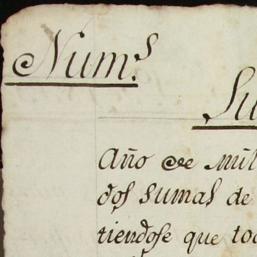 Num.s
Su
Año de mil
dos sumas de
tiendose que to